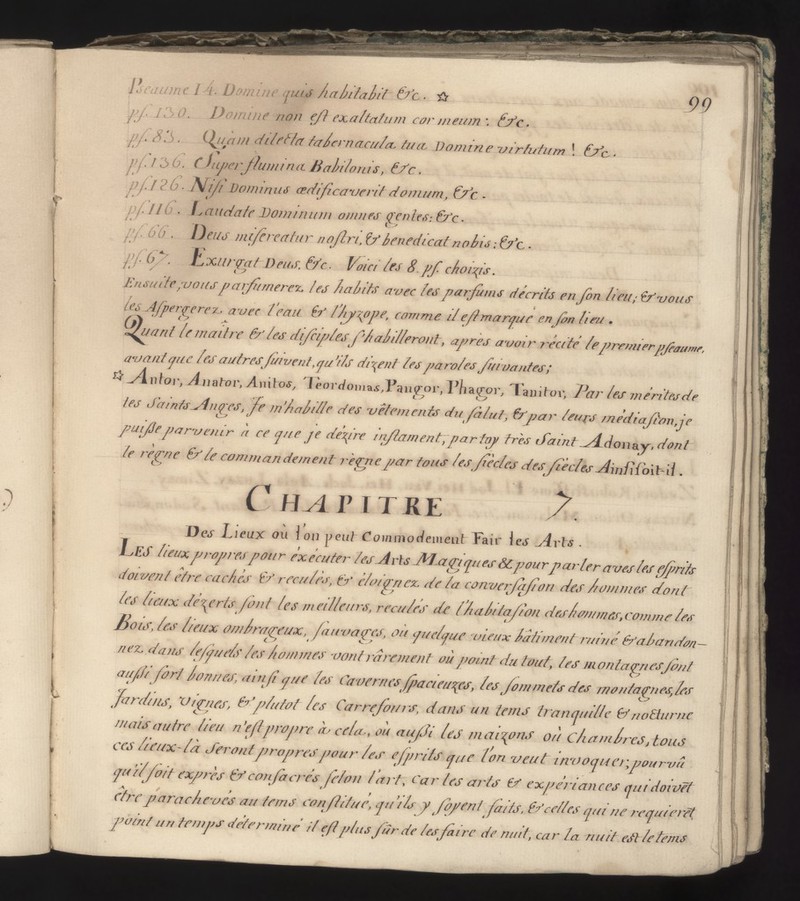 99
Pseaume 14. Domine quis habitabit &c. ☆
ps. 130. Domine non est exaltatum cor meum: &c.
ps. 83. Quàm dilecta tabernacula tua Domine virtutum! &c.
ps. 136. Super flumina Babilonis, &c.
ps. 126. Nisi Dominus ædificaverit domum, &c.
ps. 116. Laudate Dominum omnes gentes: &c.
ps. 66. Deus misereatur nostri, & benedicat nobis: &c.
ps. 67. Exurgat Deus, &c. Voici les 8. ps. choizis.
Ensuite, vous parfumerez les habits avec les parfums décrits en son lieu; & vous
les Aspergerez avec l'eau & l'hyzope, comme il est marqué en son lieu.
Quant le maître & les disciples s'habilleront, après avoir récité le premier pseaume,
avant que les autres suivent, qu'ils dizent les paroles suivantes;
☆ Antor, Anator, Anitos, Teordomas, Pangor, Phagor, Tanitor, Par les mérites de
tes Saints Anges, Je m'habille des vêtements du salut, & par leurs médiasion, je
puisse parvenir à ce que je dézire instament, par toy très Saint Adonay, dont
le règne & le commandement règne par tous les siècles des siècles Ainsi soit-il.
CHAPITRE 7.
Des Lieux où l'on peut Commodement Fair les Arts.
LES lieux propres pour éxécuter les Arts Magiques & pour parler aves les esprits
doivent être cachés & reculès, & éloignez de la conversasion des hommes dont
les lieux dézerts sont les meilleurs, reculés de l'habitasion des hommes, comme les
Bois, les lieux ombrageux, sauvages, où quelque vieux bâtiment ruiné & abandon-
nez dans lesquels les hommes vont rârement où point du tout, les montagnes sont
aussi fort bonnes, ainsi que les Cavernes spacieuzes, les sommets des montagnes, les
Jardins, Vignes, & plutot les Carrefours, dans un tems tranquille & nocturne
mais autre lieu n'est propre à cela, où aussi les maizons où Chambres, tous
ces lieux-là Seront propres pour les esprits que l'on veut invoquer; pourvû
qu'il soit exprès & consacrés selon l'art, car les arts & expériances qui doivēt
être parachevés au tems constitué, qu'ils y soyent faits, & celles qui ne requierēt
point un temps déterminé il est plus sûr de les faire de nuit, car la nuit est le tems